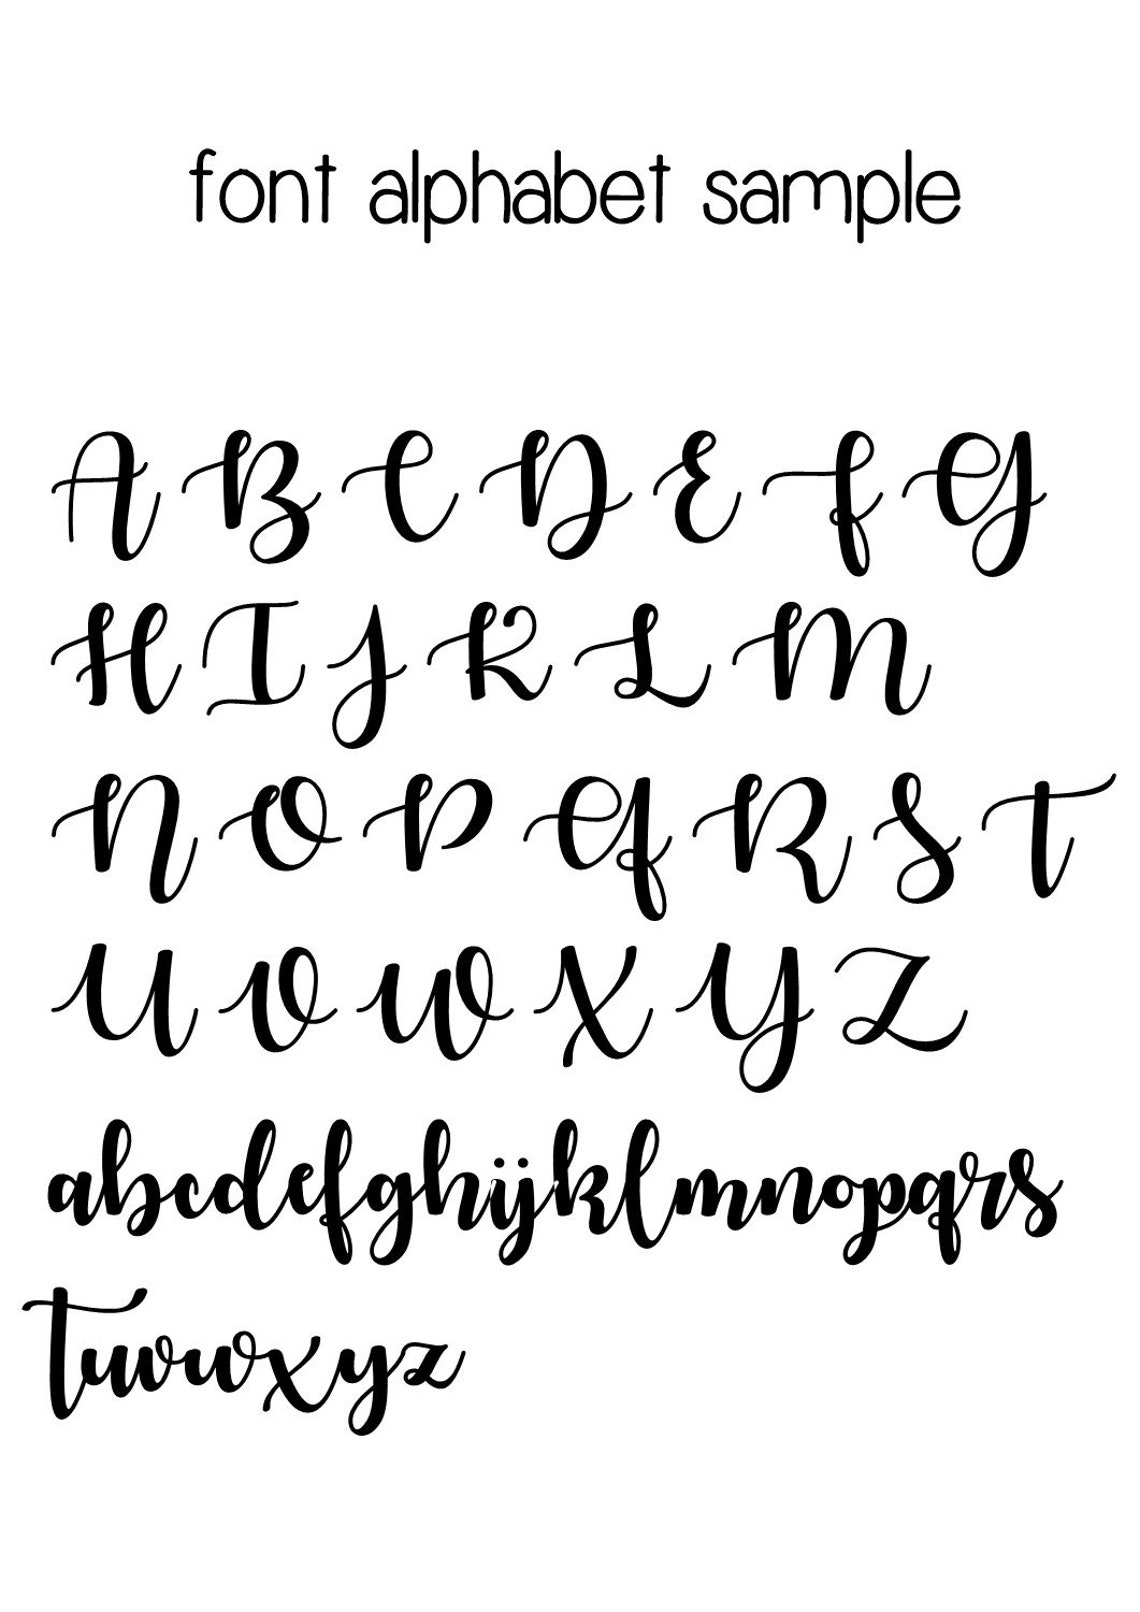 font alphabet sample
A B C D E F G
H I J K L M
N O P Q R S T
U V W X Y Z
abcdefghijklmnopqrs
tuvwxyz